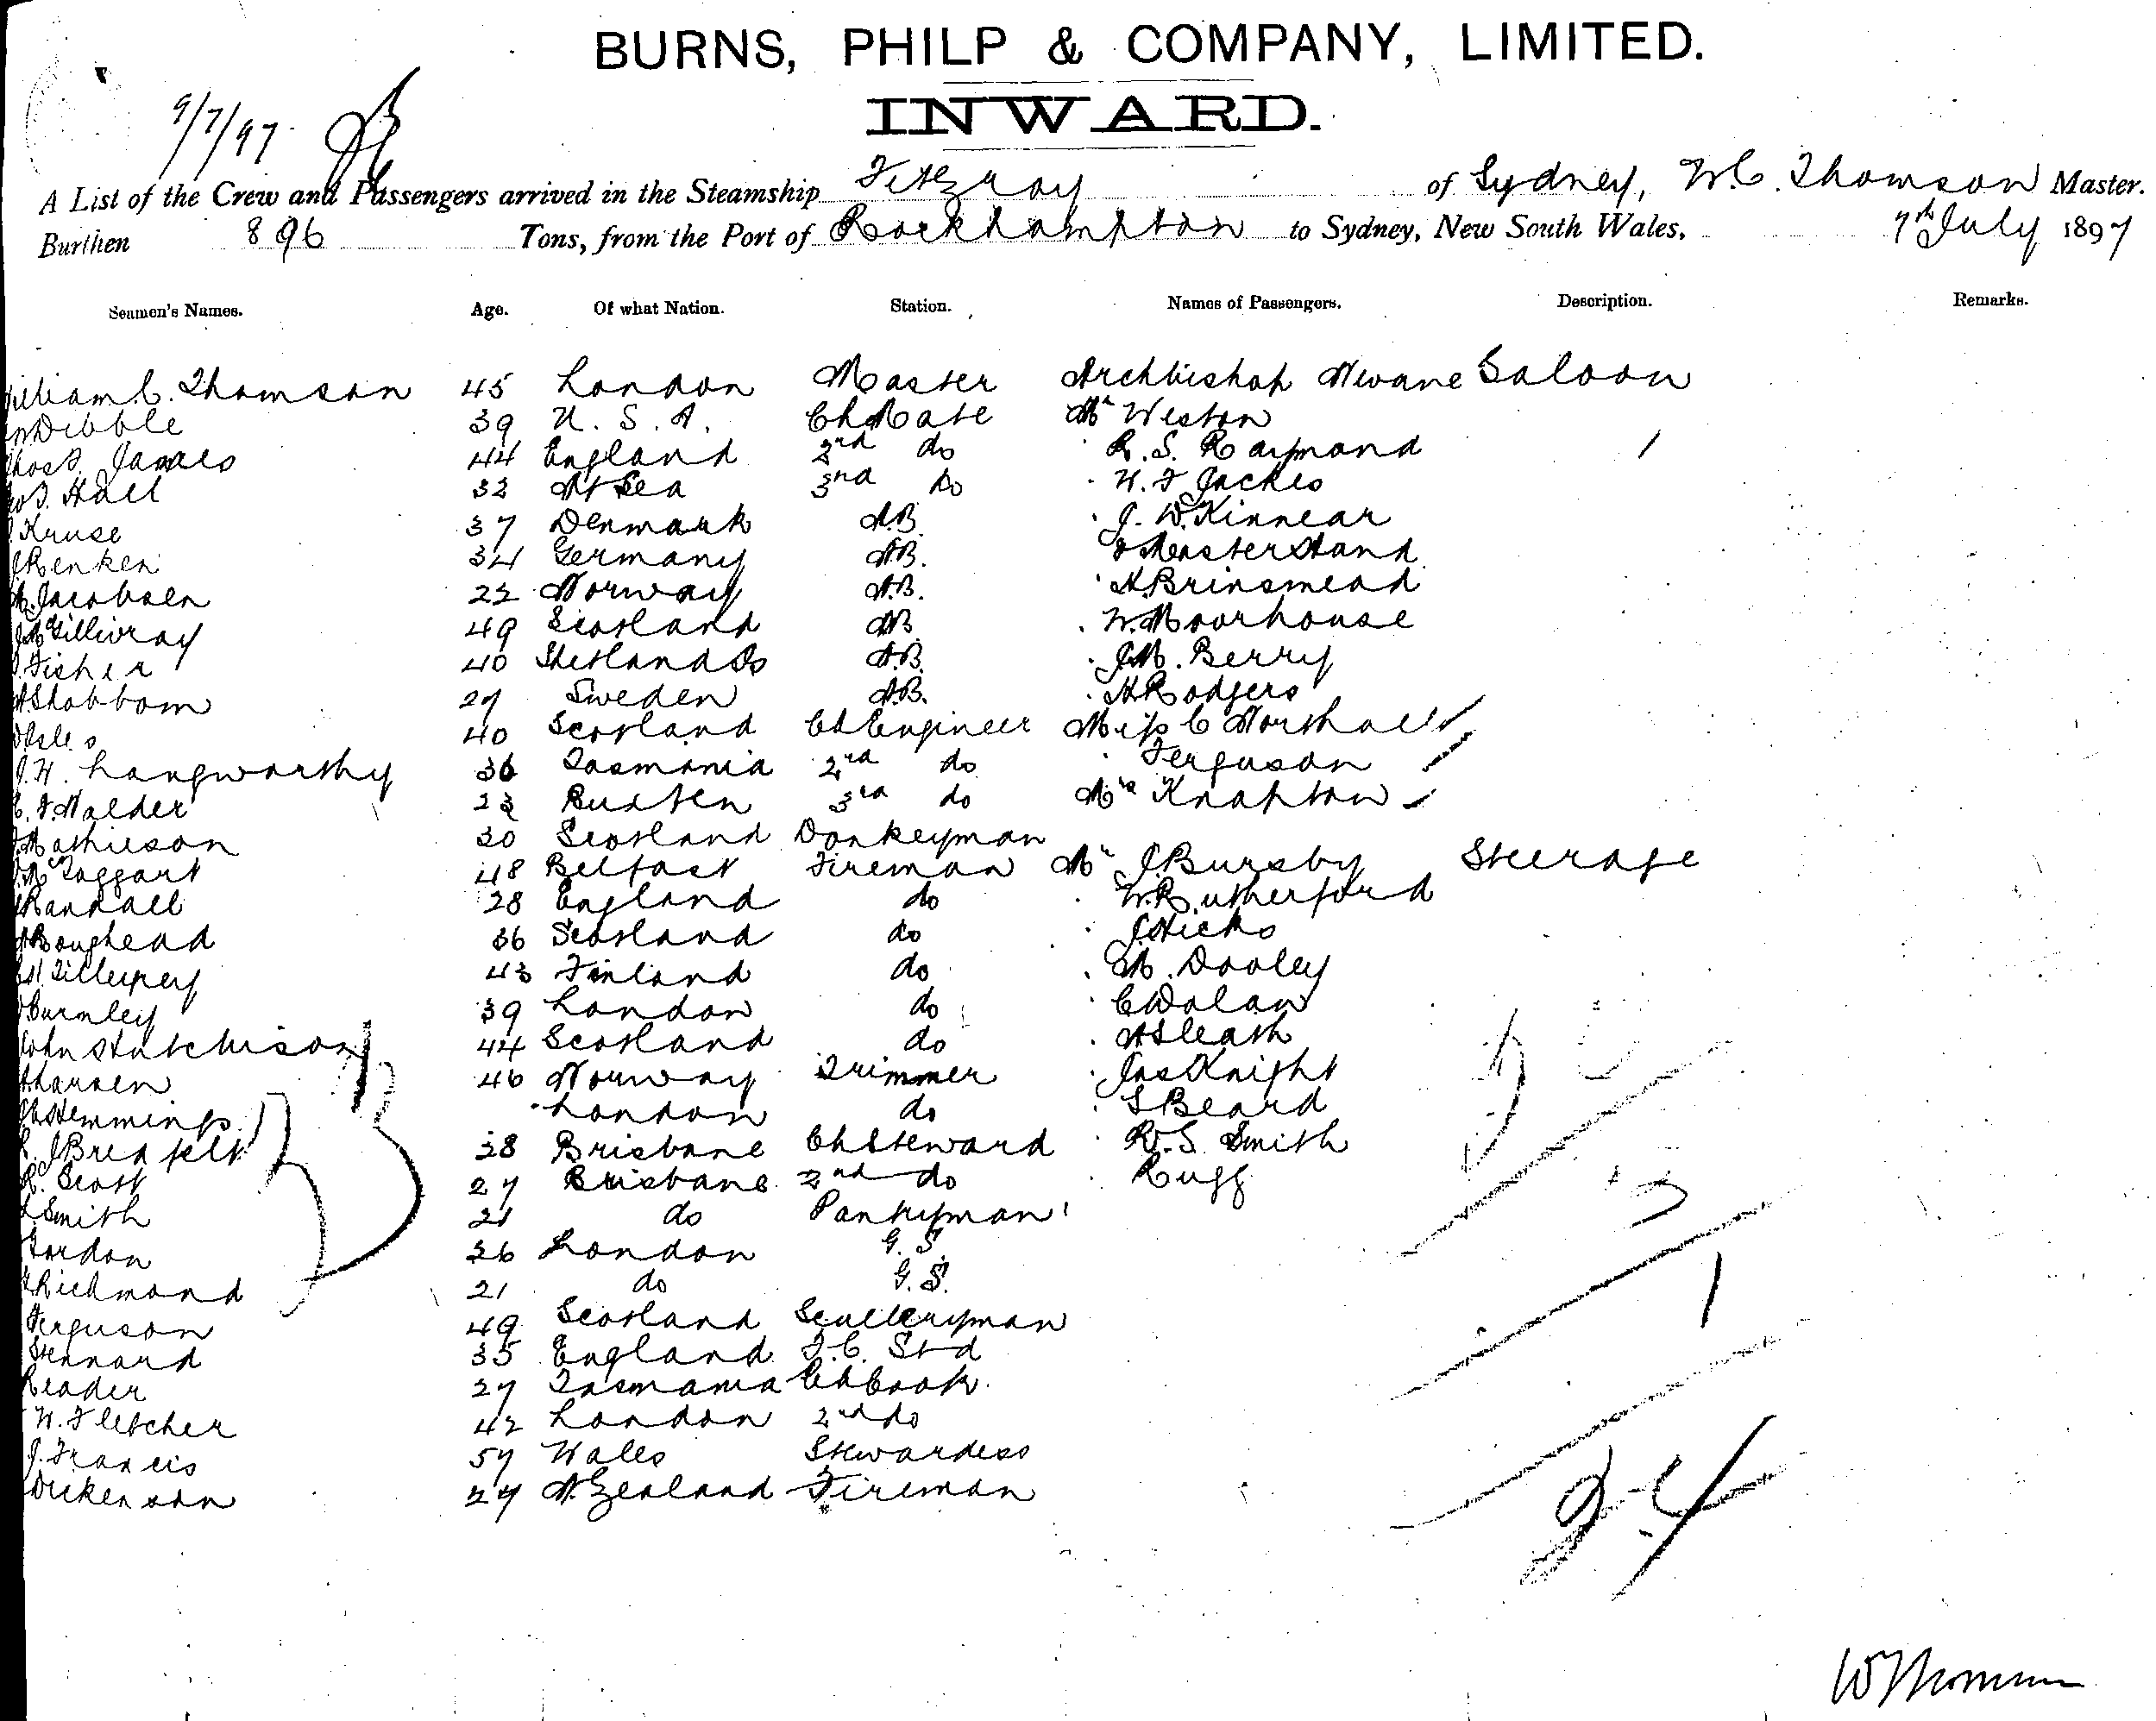 BURNS, PHILP & COMPANY, LIMITED.
INWARD.
9/7/97
A List of the Crew and Passengers arrived in the Steamship Fitzroy of Sydney, W.C. Thomson Master.
Burthen 896 Tons, from the Port of Rockhampton to Sydney, New South Wales, 7th July 1897
Seamen's Names. Age. Of what Nation. Station. Names of Passengers. Description. Remarks.
William C. Thomson 45 London Master Archbishop Saloon
Dibble 39 U.S.A. Ch Mate Mr Weston
James 44 England 2nd do R.S. Raymond
Hall 32 At Sea 3rd do
Kruse 37 Denmark A.B. J.W. Kinnear
Renken 34 Germany A.B. Master Hand
Jacobsen 22 Norway A.B. H Brinsmead
McGillivray 49 Scotland AB W. Moorhouse
Fisher 40 Shetland Is A.B. J.M. Berry
29 Sweden A.B. H Rodgers
40 Scotland Ch Engineer Miss C Marshall
J.H. Langworthy 36 Tasmania 2nd do Ferguson
23 3rd do Mrs Knapton
Mathieson 30 Scotland Donkeyman
McTaggart 48 Belfast Fireman Mr J Bursby Steerage
Randall 28 England do W. Rutherford
Boughead 36 Scotland do J Hicks
43 Finland do M. Dooley
Burnley 39 London do C Dolan
John Hutchison 44 Scotland do A Sleath
Larsen 46 Norway Trimmer Jas Knight
Hemmings London do S Beard
38 Brisbane Ch Steward R.S. Smith
R. Scott 27 Brisbane 2nd do Rugg
Smith 21 do Pantryman
Gordon 26 London G.S.
Richmond 21 do G.S.
Ferguson 49 Scotland Sculleryman
Stennard 35 England F.C. Std
Reader 27 Tasmania Ch Cook
W. Fletcher 42 London 2nd do
J. Francis 57 Wales Stewardess
Dickenson 27 N. Zealand Fireman
33
24